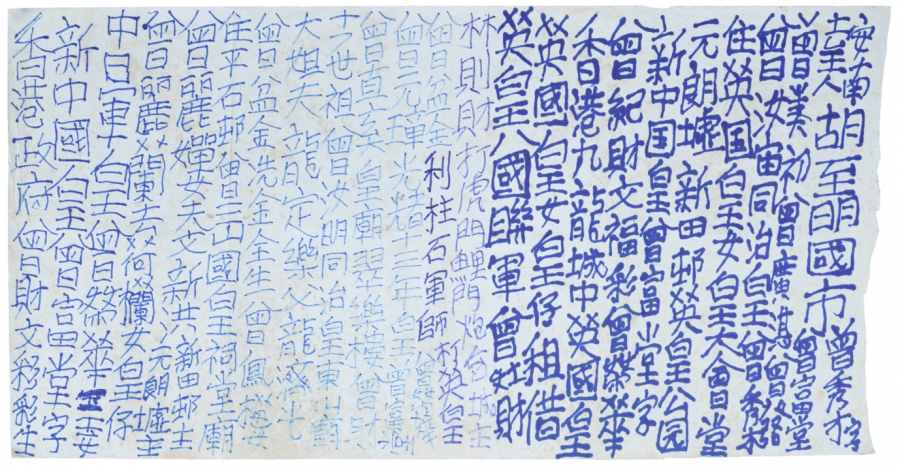 安南胡至明國市曾秀才字
曾美初曾廣其曾富田堂
曾汝宙同治皇曾
住英国皇女皇大會堂
元朗墟新田邨英皇公园
新中国皇曾富堂字
曾紀財文福彩曾榮華
香港九龍城中英國皇
英國皇女皇仔租借
英皇八國聯軍曾灶財
林則財打虎門鯉門炮台城主
利柱石軍師打英皇
曾盆金
曾元禪光緒十三年皇曾富田
曾直玄皇廟翠樂樓曾財
世祖曾汝明同治皇東
大姐夫龍定樂父龍
曾盆金洗金金生曾鳳
住平石邨曾三山國皇祠堂廟
曾麗嬋女夫文新洪新田邨主
曾麗蘭夫何欄女皇仔元朗墟主
中軍皇曾榮華
新中國皇曾富田堂字
香港政府曾財文彩彩生